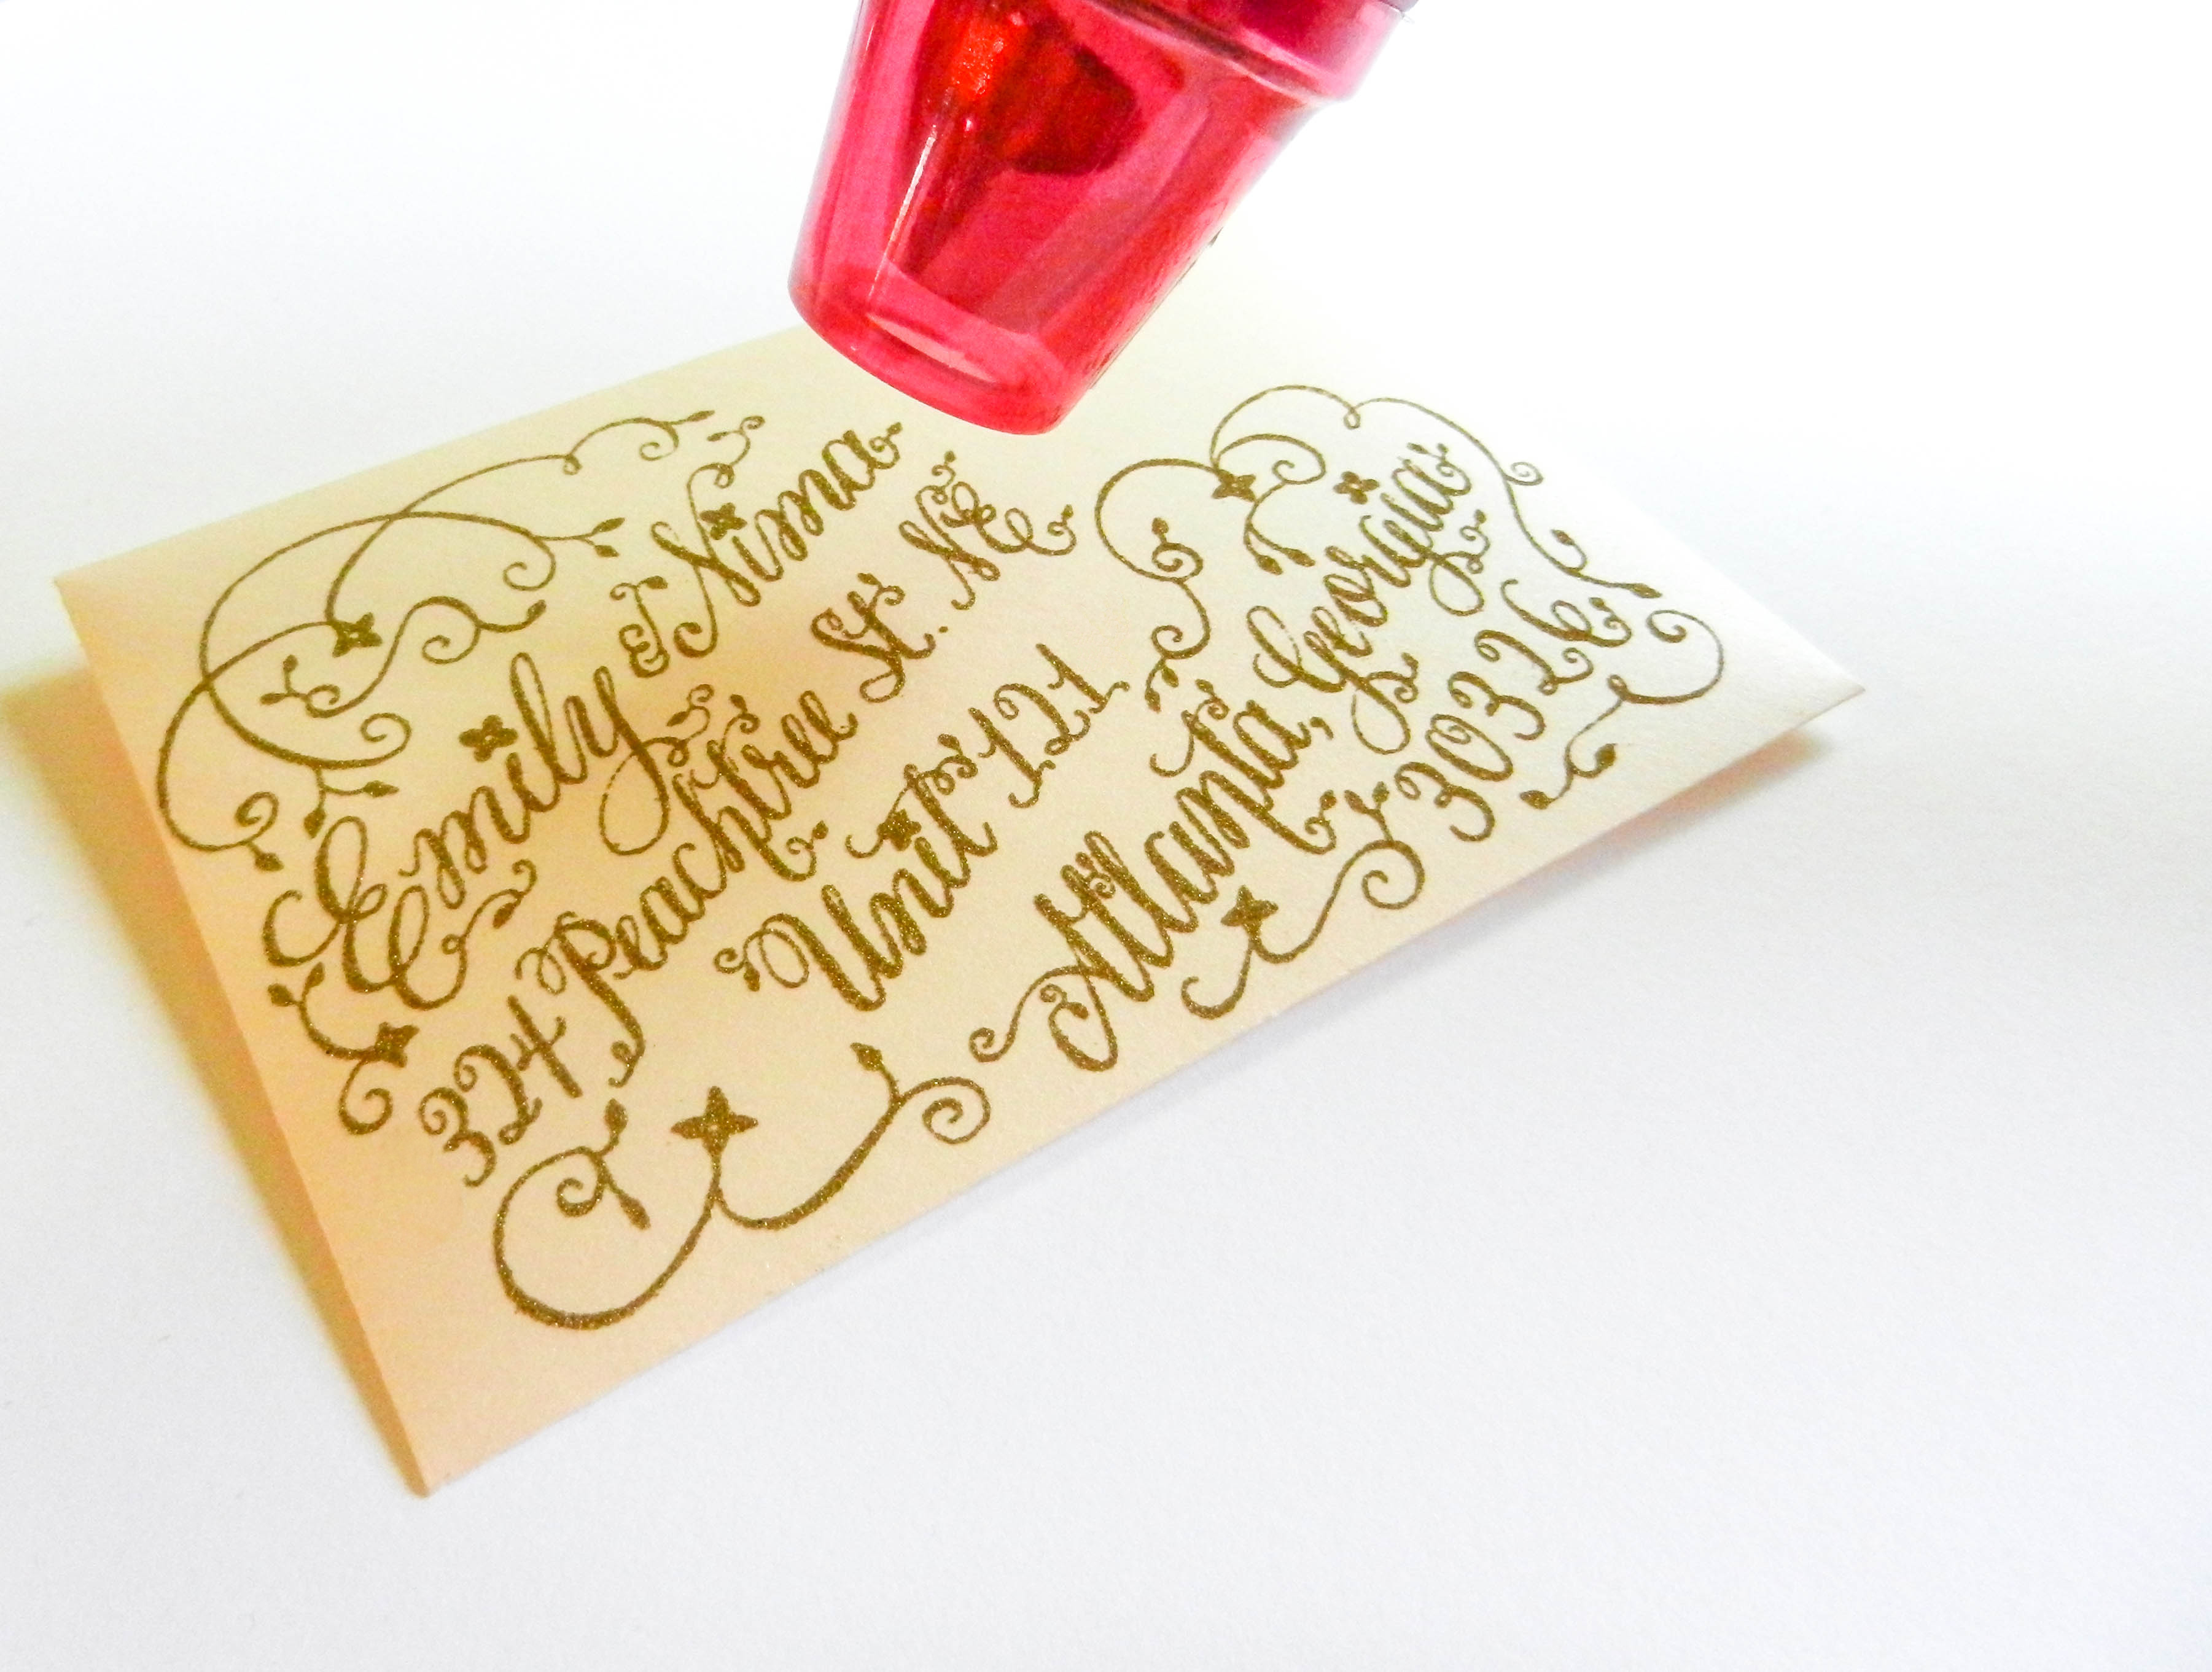 Emily & Nima
324 Peachtree St. NE
Unit 121
Atlanta, Georgia
30326